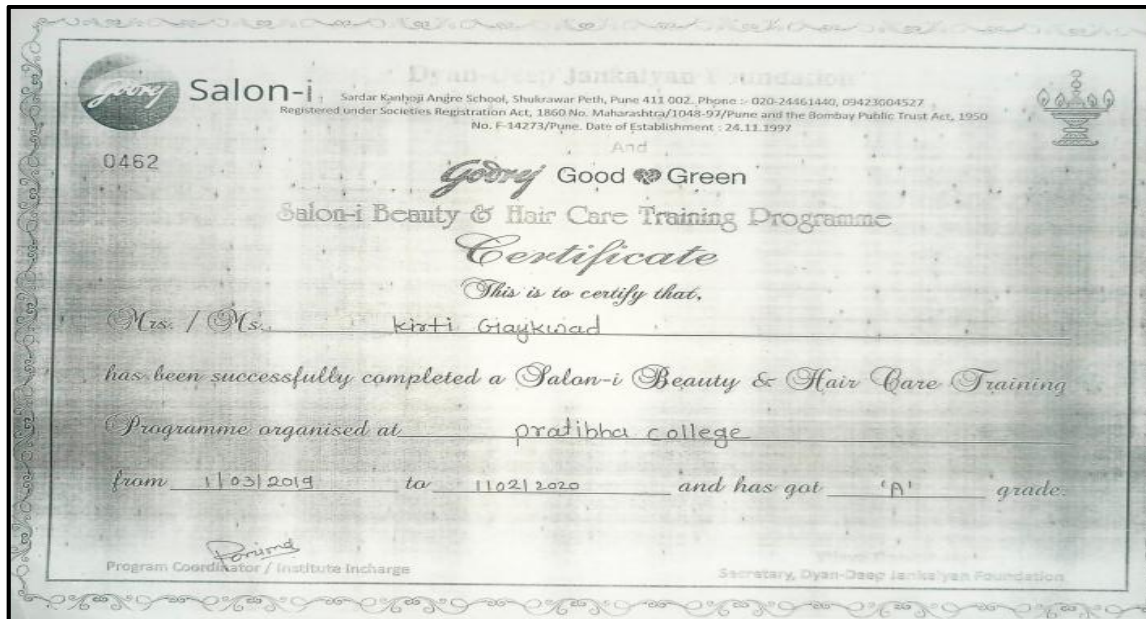 Godrej Salon-i
Dyan-Deep Jankalyan Foundation
Sardar Kanhoji Angre School, Shukrawar Peth, Pune 411 002. Phone :- 020-24461440, 09423004527
Registered under Societies Registration Act, 1860 No. Maharashtra/1048-97/Pune and the Bombay Public Trust Act, 1950
No. F-14273/Pune. Date of Establishment : 24.11.1997
And
0462
Godrej Good Green
Salon-i Beauty & Hair Care Training Programme
Certificate
This is to certify that,
Mrs. / Ms. Kirti Giaykwad
has been successfully completed a Salon-i Beauty & Hair Care Training
Programme organised at pratibha college
from 1/03/2019 to 1/02/2020 and has got 'A' grade.
Program Coordinator / Institute Incharge
Secretary, Dyan-Deep Jankalyan Foundation